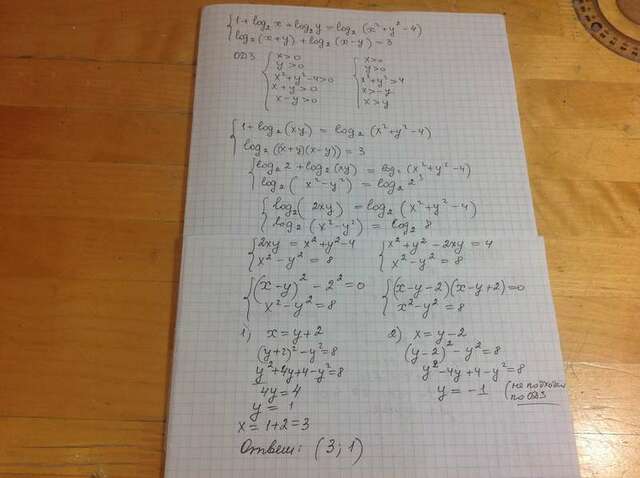 1 + log₂ x + log₂ y = log₂ (x² + y² - 4)
log₂ (x+y) + log₂ (x-y) = 3
ОДЗ { x>0 { x>0
y>0 y>0
x²+y²-4>0 x²+y²>4
x+y>0 x>-y
x-y>0 x>y
{ 1 + log₂ (xy) = log₂ (x²+y²-4)
log₂ ((x+y)(x-y)) = 3
{ log₂ 2 + log₂ (xy) = log₂ (x²+y²-4)
log₂ ( x²-y²) = log₂ 2³
{ log₂ ( 2xy) = log₂ (x²+y²-4)
log₂ (x²-y²) = log₂ 8
{ 2xy = x²+y²-4 { x²+y²-2xy = 4
x²-y² = 8 x²-y² = 8
{ (x-y)² - 2² = 0 { (x-y-2)(x-y+2)=0
x²-y² = 8 x²-y² = 8
1) x = y+2 2) x = y-2
(y+2)²-y²=8 (y-2)²-y²=8
y²+4y+4-y²=8 y²-4y+4-y²=8
4y = 4 y = -1 (не подходит
y = 1 по ОДЗ
x = 1+2 = 3
Ответ: (3; 1)